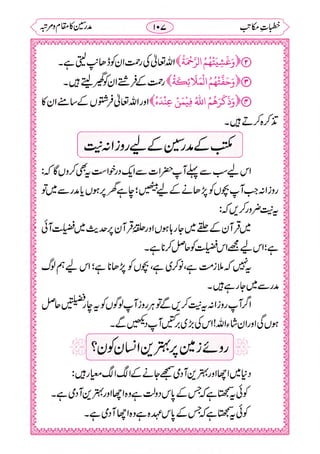 خطباتِ مکاتب ۱۰۷ مدرسین کا مقام و مرتبہ
﴿۲﴾ وَغَشِيَتْهُمُ الرَّحْمَةُ﴾ اللہ تعالیٰ کی رحمت ان کو ڈھانپ لیتی ہے۔
﴿۳﴾ وَحَفَّتْهُمُ الْمَلٰٓئِكَةُ﴾ رحمت کے فرشتے ان کو گھیر لیتے ہیں۔
﴿۴﴾ وَذَكَرَهُمُ اللّٰهُ فِيْمَنْ عِنْدَهٗ﴾ اور اللہ تعالیٰ فرشتوں کے سامنے ان کا
تذکرہ کرتے ہیں۔
مکتب کے مدرسین کے لیے روزانہ نیت
اس لیے سب سے پہلے آپ حضرات سے ایک درخواست یہ بھی کروں گا کہ:
روزانہ جب آپ بچوں کو پڑھانے کے لیے بیٹھیں؛ چاہے گھر پر ہوں یا مدرسے میں تو
یہ نیت ضرور کریں کہ:
میں قرآن کے حلقے میں جا رہا ہوں اور حلقۂ قرآن پر حدیث میں فضیلت آئی
ہے؛ اس لیے مجھے اس فضیلت کو حاصل کرنا ہے۔
یہ نہیں کہ ملازمت ہے، نوکری ہے، بچوں کو پڑھانا ہے؛ اس لیے ہم لوگ
مدرسے میں جا رہے ہیں۔
اگر آپ روزانہ یہ نیت کریں گے تو ہر روز آپ لوگوں کو یہ چار فضیلتیں حاصل
ہوں گی اور ان شاء اللہ! اس کی بڑی برکتیں آپ دیکھیں گے۔
روئے زمین پر بہترین انسان کون؟
دنیا میں اچھا اور بہترین آدمی سمجھے جانے کے الگ الگ معیار ہیں:
کوئی یہ سمجھتا ہے کہ جس کے پاس دولت ہے وہ اچھا اور بہترین آدمی ہے۔
کوئی یہ سمجھتا ہے کہ جس کے پاس عہدہ ہے وہ اچھا آدمی ہے۔